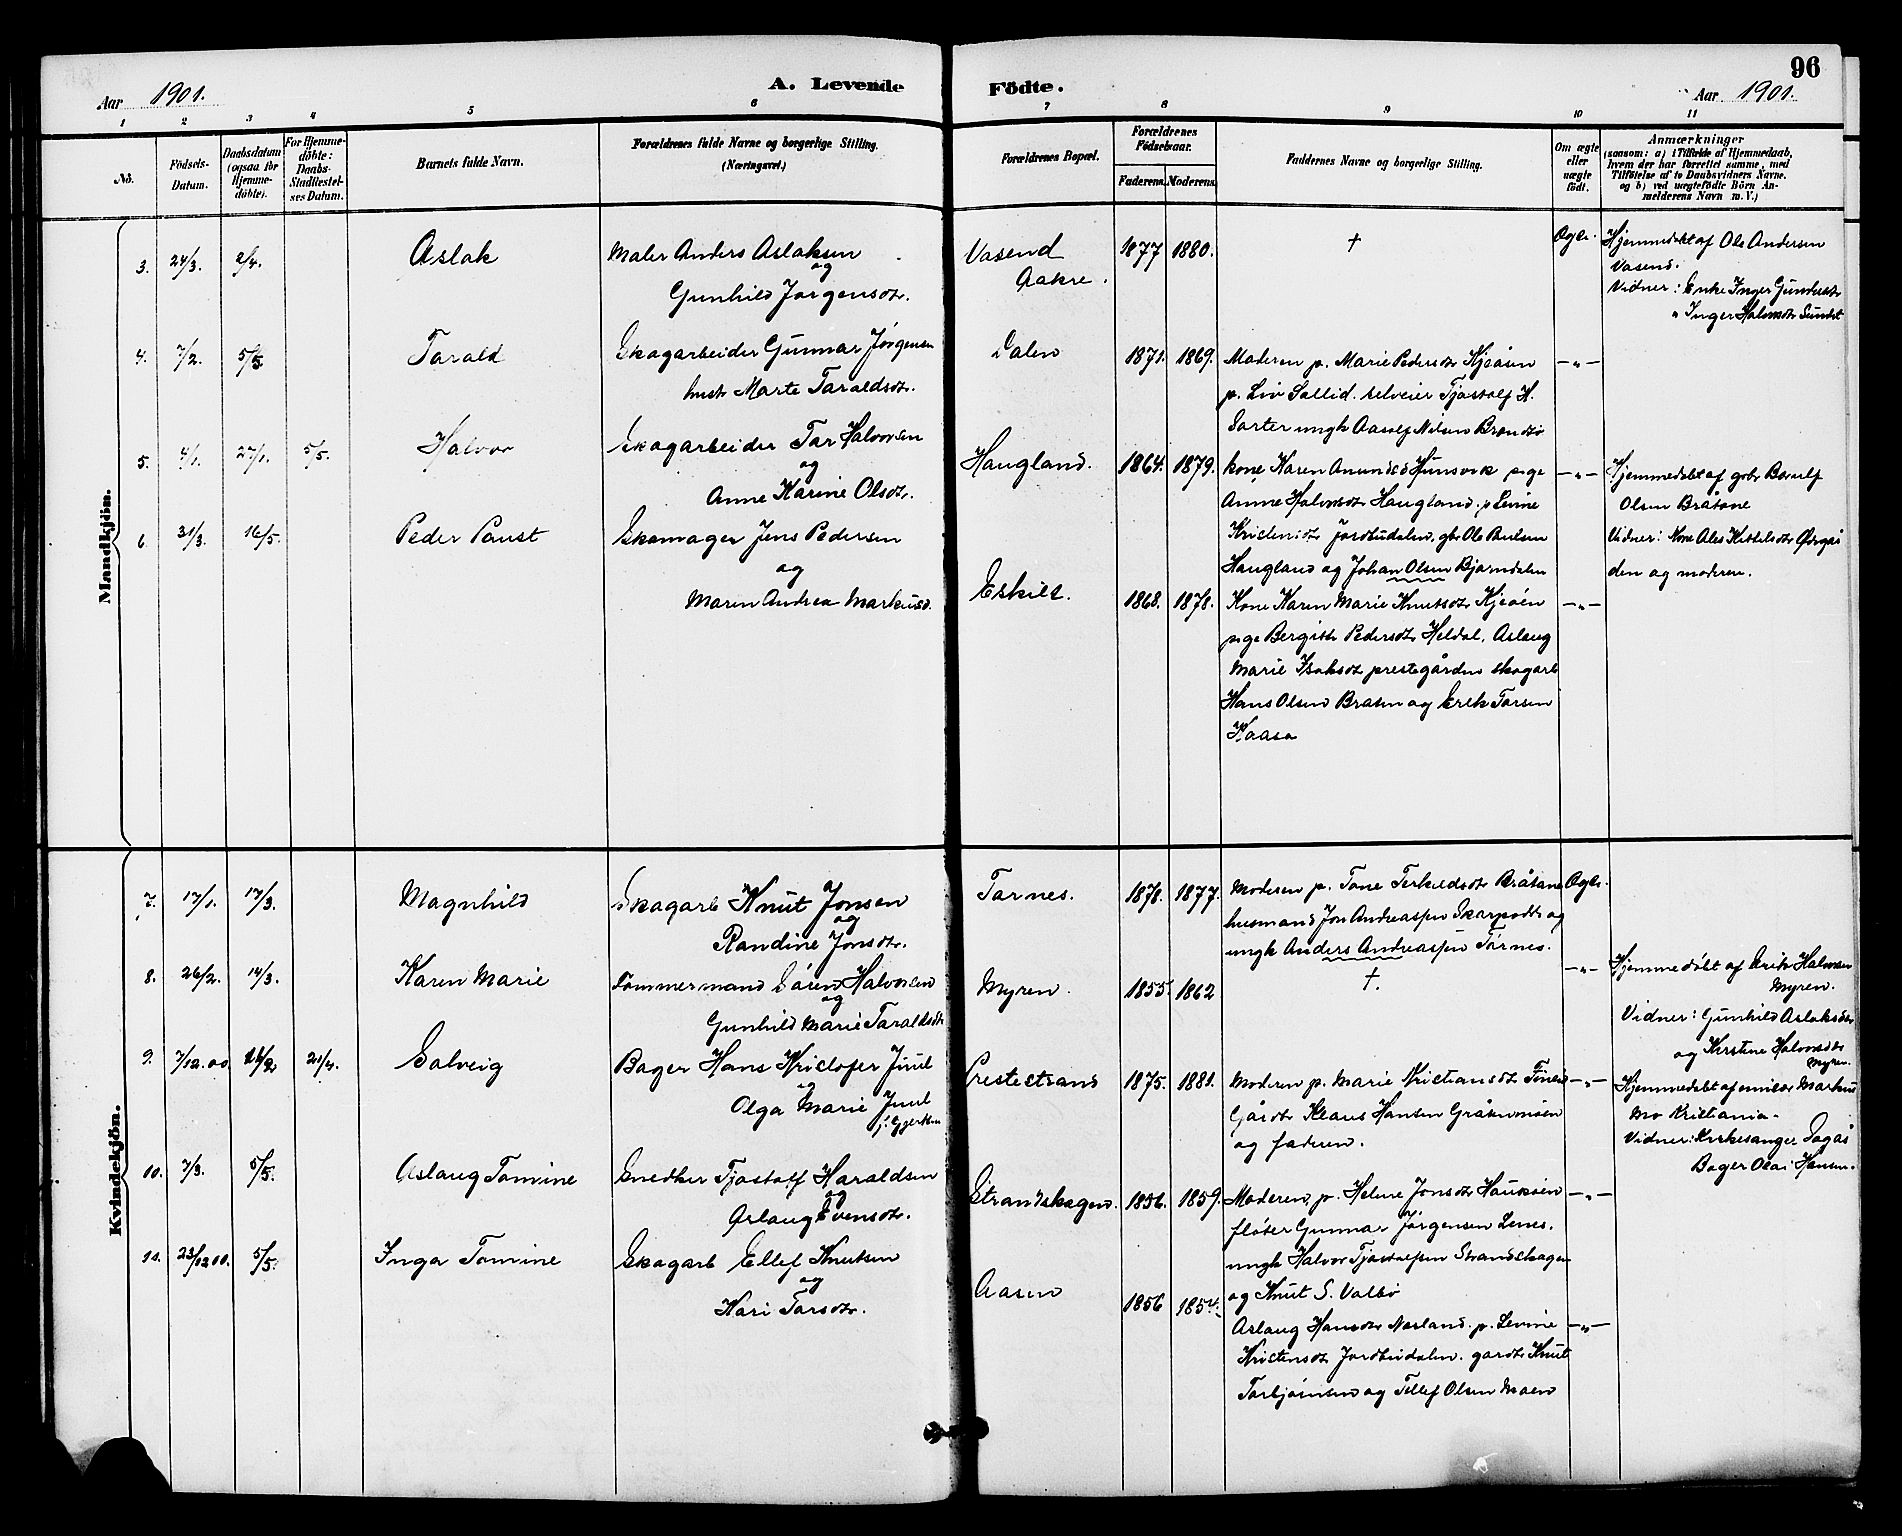 96
Aar 1901.
A. Levende
Födte.
Aar 1901.
1 2 3 4 5 6 7 8 9 10 11
No.
Födsels-Datum.
Daabsdatum (ogsaa for Hjemme-döbte).
For Hjemme-döbte: Daabs-Stadfæstel-ses Datum.
Barnets fulde Navn.
Forældrenes fulde Navne og borgerlige Stilling.
(Næringsvei.)
Forældrenes Bopæl.
Forældrenes Födselsaar.
Faderens. Moderens.
Faddernes Navne og borgerlige Stilling.
Om ægte eller uægte födt.
Anmærkninger
(saasom: a) i Tilfælde af Hjemmedaab,
hvem der har forrettet samme, med
Tilföielse af to Daabsvidners Navne.
og b) ved uægtefödte Börn An-
melderens Navn m. V.)
Mandkjön.
3. 24/3. 2/4. Aslak
Maler Anders Aslaksen
og
Gunhild Jørgensdtr.
Vasend
Aakre.
1877 1880.
†
Ægte.
Hjemmedøbt af Ole Andersen
Vasend.
Vidner: Enke Inger Gundersdtr
" Inger Halvorsdtr Sundet
4. 7/2. 5/5. Tarald
Skogarbeider Gunnar Jørgensen
hustr Marte Taraldsdtr.
Dalen
1871. 1869.
Moderen p. Marie Pedersdtr Kjeåsen
p. Liv Sollid. selveier Tjøstolf H.
Sarter ungk Aasolf Nilsen Brendsø
— „ —
5. 4/1. 27/1. 5/5. Halvor
Skogarbeider Tor Halvorsen
og
Anne Karine Olsdtr.
Haugland.
1864. 1879.
kone Karen Anundsd Hunsvik pige
Anne Halvorsdtr Haugland. p Levine
Kristensdtr Jordbudalen. gbr Ole Paulsen
Haugland og Johan Olsen Bjørndalen
— „ —
Hjemmedøbt af gbr Bærulf
Olsen Bråtane
Vidner: Kone Ales Kittelsdtr Øvrgår
den og moderen.
6. 31/3. 16/5. Peder Paust
Skomager Jens Pedersen
og
Maren Andrea Markusd.
Eskilt.
1868. 1878.
Kone Karen Marie Knutsdtr Kjeøen
pige Bergith Pedersdtr Heldal, Aslaug
Marie Isaksdtr prestegården skogarb
Hans Olsen Braten og Erik Torsen
Kaasa
— „ —
Kvindekjön.
7. 17/1. 17/3. Magnhild
Skogarb Knut Jonsen
og
Randine Jonsdtr.
Tørnes.
1878. 1877.
Moderen p. Tone Terkildsdtr Bråtane
husmand Jon Andreassen Skarpodde og
ungk Anders Andreassen Tørnes.
Ægte.
8. 26/2. 14/3. Karen Marie
Tømmermand Søren Halvorsen
og
Gunhild Marie Taraldsdtr
Myren.
1855. 1862
†.
— „ —
Hjemmedøbt af Erik Halvorsen
Myren.
Vidner: Gunhild Aslaksdtr
og Kirstine Halvorsdtr
Myren.
9. 7/12.00. 21/4. Solveig
Bager Hans Kristofer Juul
og
Olga Marie Juul
Prestestrand
1875. 1881.
Moderen p. Marie Kristiansdtr
Gårdbr Klaus Hansen Gråkumåsen
og faderen.
— „ —
Hjemmedøbt af emissær Markus
Mo Kristiania.
Vidner: Kirkesanger
Bager Olai Hansen.
10. 7/3. 5/5. Aslaug Tomine
Snedker Tjøstolf Haraldsen
og
Aslaug Evensdtr.
Strandskogen.
1856. 1859.
Moderen, p. Helene Jonsdtr Hauksøen
fløter Gunnar Jørgensen Lenes.
ungk Halvor Tjøstolfsen Strandskogen
og Knut S. Valbø
— „ —
10. 23/12 00. 5/5. Inga Tomine
Skogarb Ellef Knutsen
og
Kari Torsdtr.
Aasen
1856 1854.
Aslaug Hansdtr Nesland. p. Levine
Kristensdtr Jordbudalen. gårdbr Knut
Torbjørnsen og Tellef Olsen Moen
— „ —